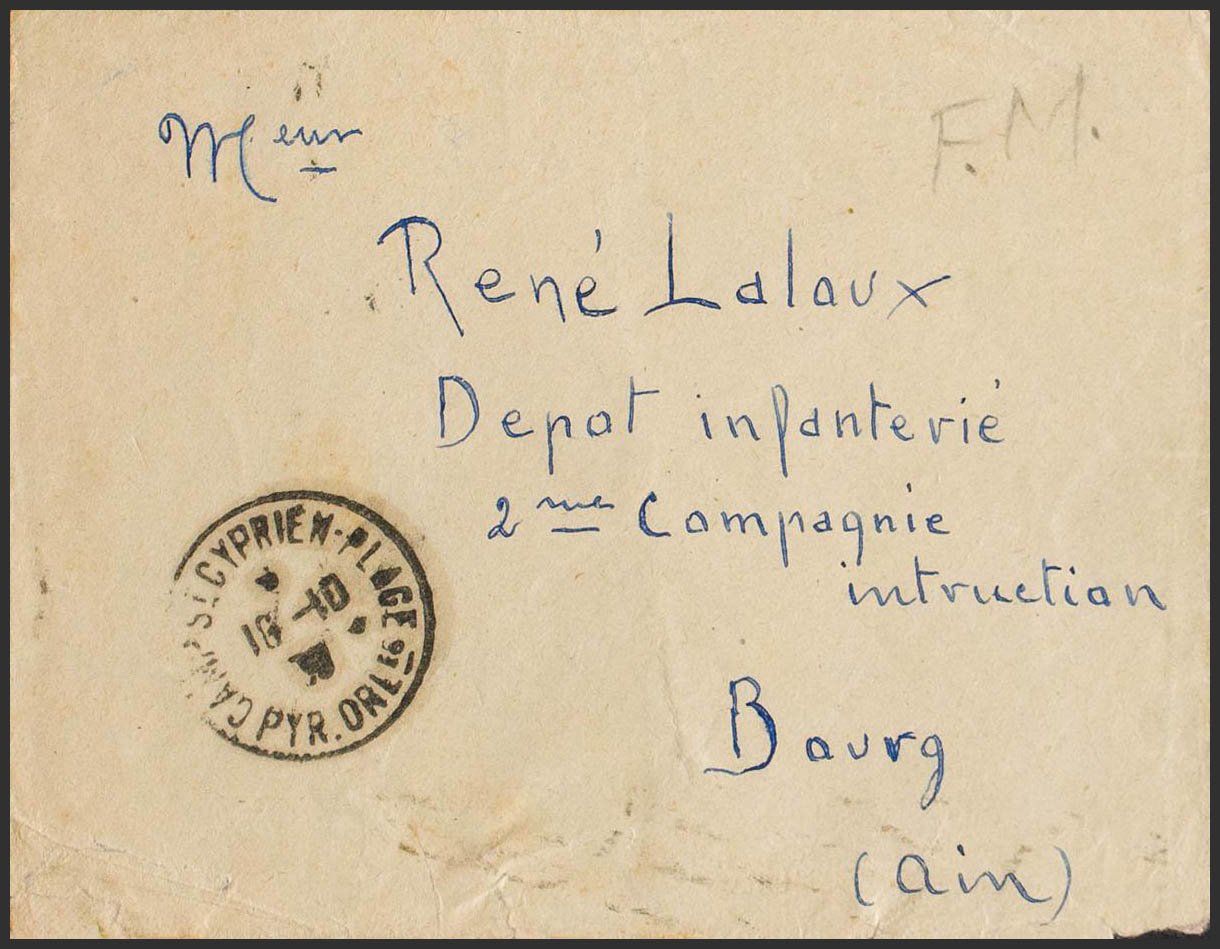 F.M.
Meur
René Lalaux
Depot infanterié
2me Compagnie
intruction
Bourg
(Ain)
CAMP ST CYPRIEN-PLAGE
16 -10
PYR. ORLES